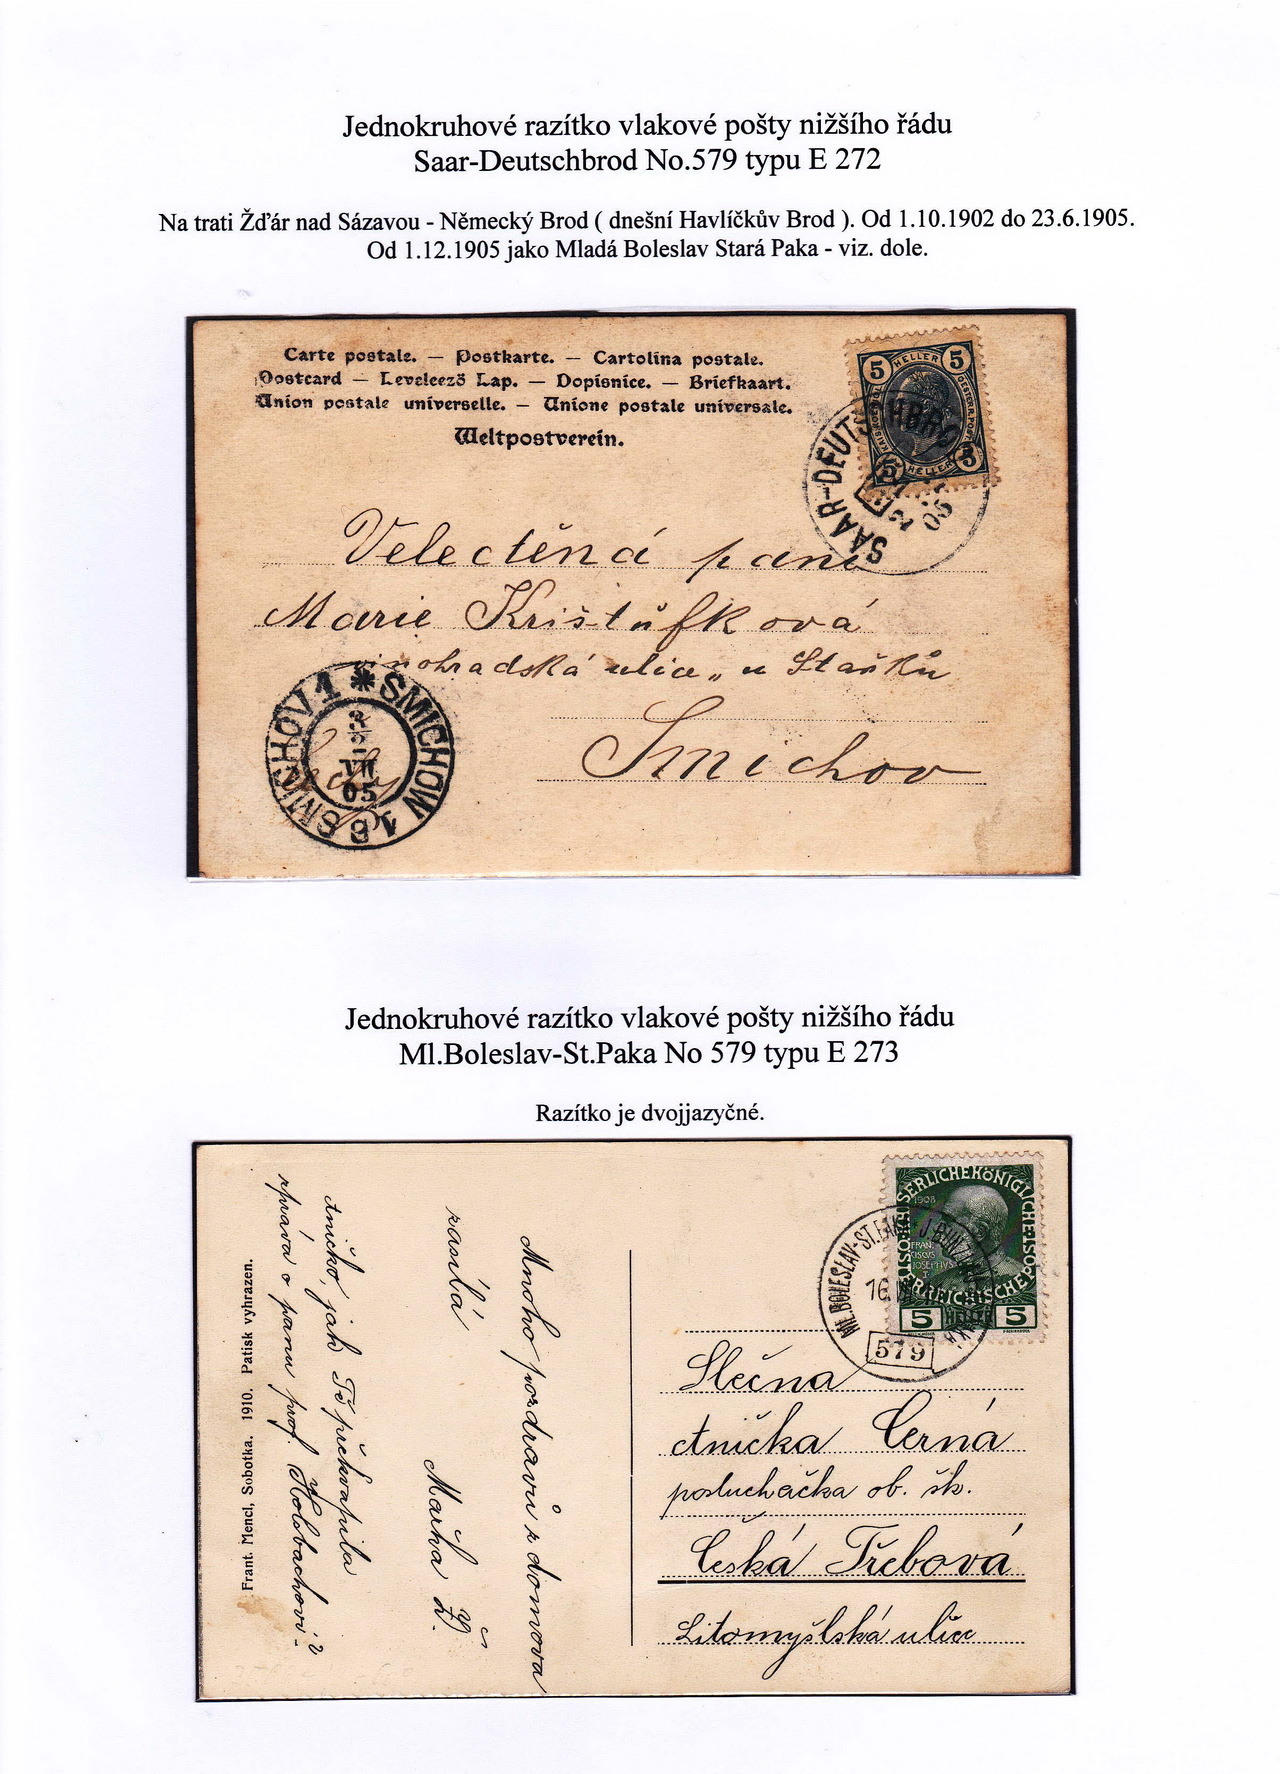 Jednokruhové razítko vlakové pošty nižšího řádu
Saar-Deutschbrod No.579 typu E 272
Na trati Žďár nad Sázavou - Německý Brod ( dnešní Havlíčkův Brod ). Od 1.10.1902 do 23.6.1905.
Od 1.12.1905 jako Mladá Boleslav Stará Paka - viz. dole.
Carte postale. — Postkarte. — Cartolina postale.
Postcard — Levelező Lap. — Dopisnice. — Briefkaart.
Union postale universelle. — Unione postale universale.
Weltpostverein.
5 HELLER 5
5 HELLER 5
SAAR-DEUTSCHBROD
05
Velectěná paní
Marie Krištůfková
vinohradská ulice „u Stašků
Smichov
SMICHOV 1 * SMICHOW 1
3
VII
05
Jednokruhové razítko vlakové pošty nižšího řádu
Ml.Boleslav-St.Paka No 579 typu E 273
Razítko je dvojjazyčné.
1908
5 HELLER 5
ML.BOLESLAV-ST.PAKA
579
Slečna
Anička Černá
posluchačka ob. šk.
Česká Třebová
Litomyšlská ulice
Mnoho pozdravů z domova
zasílá
Mařka
Aničko, jak Tě překvapila
zpráva o panu prof.
Frant. Mencl, Sobotka. 1910. Patisk vyhrazen.